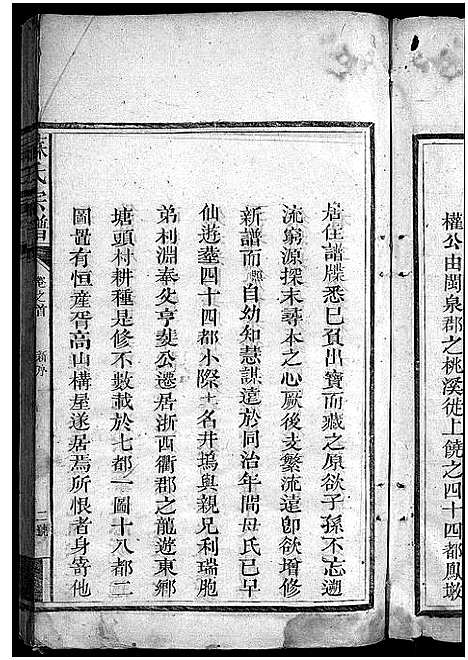 權公由閩泉郡之桃溪徙上饒之四十四都鳳墩
居住譜牒悉已負出寶而藏之原欲子孫不忘遡
流窮源探末尋本之心厥後支繁流遠卽欲增修
新譜而 自幼知慧謀遠於同治年間母氏已早
仙遊塟四十四都小際土名井塢與親兄利瑞胞
弟利淵奉父亨 公遷居浙西衢郡之龍遊東鄉
塘頭村耕種是修不數載於七都一圖十八都二
圖置有恒產胥高山構屋遂居焉所恨者身寄他
氏宗譜
卷之首
二